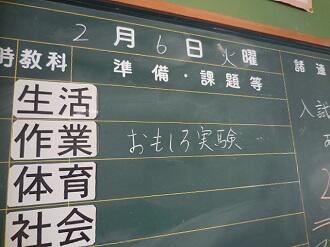 2月6日火曜
時教科 準備・課題等 諸連
生活
作業 おもしろ実験 入試
体育
社会 2